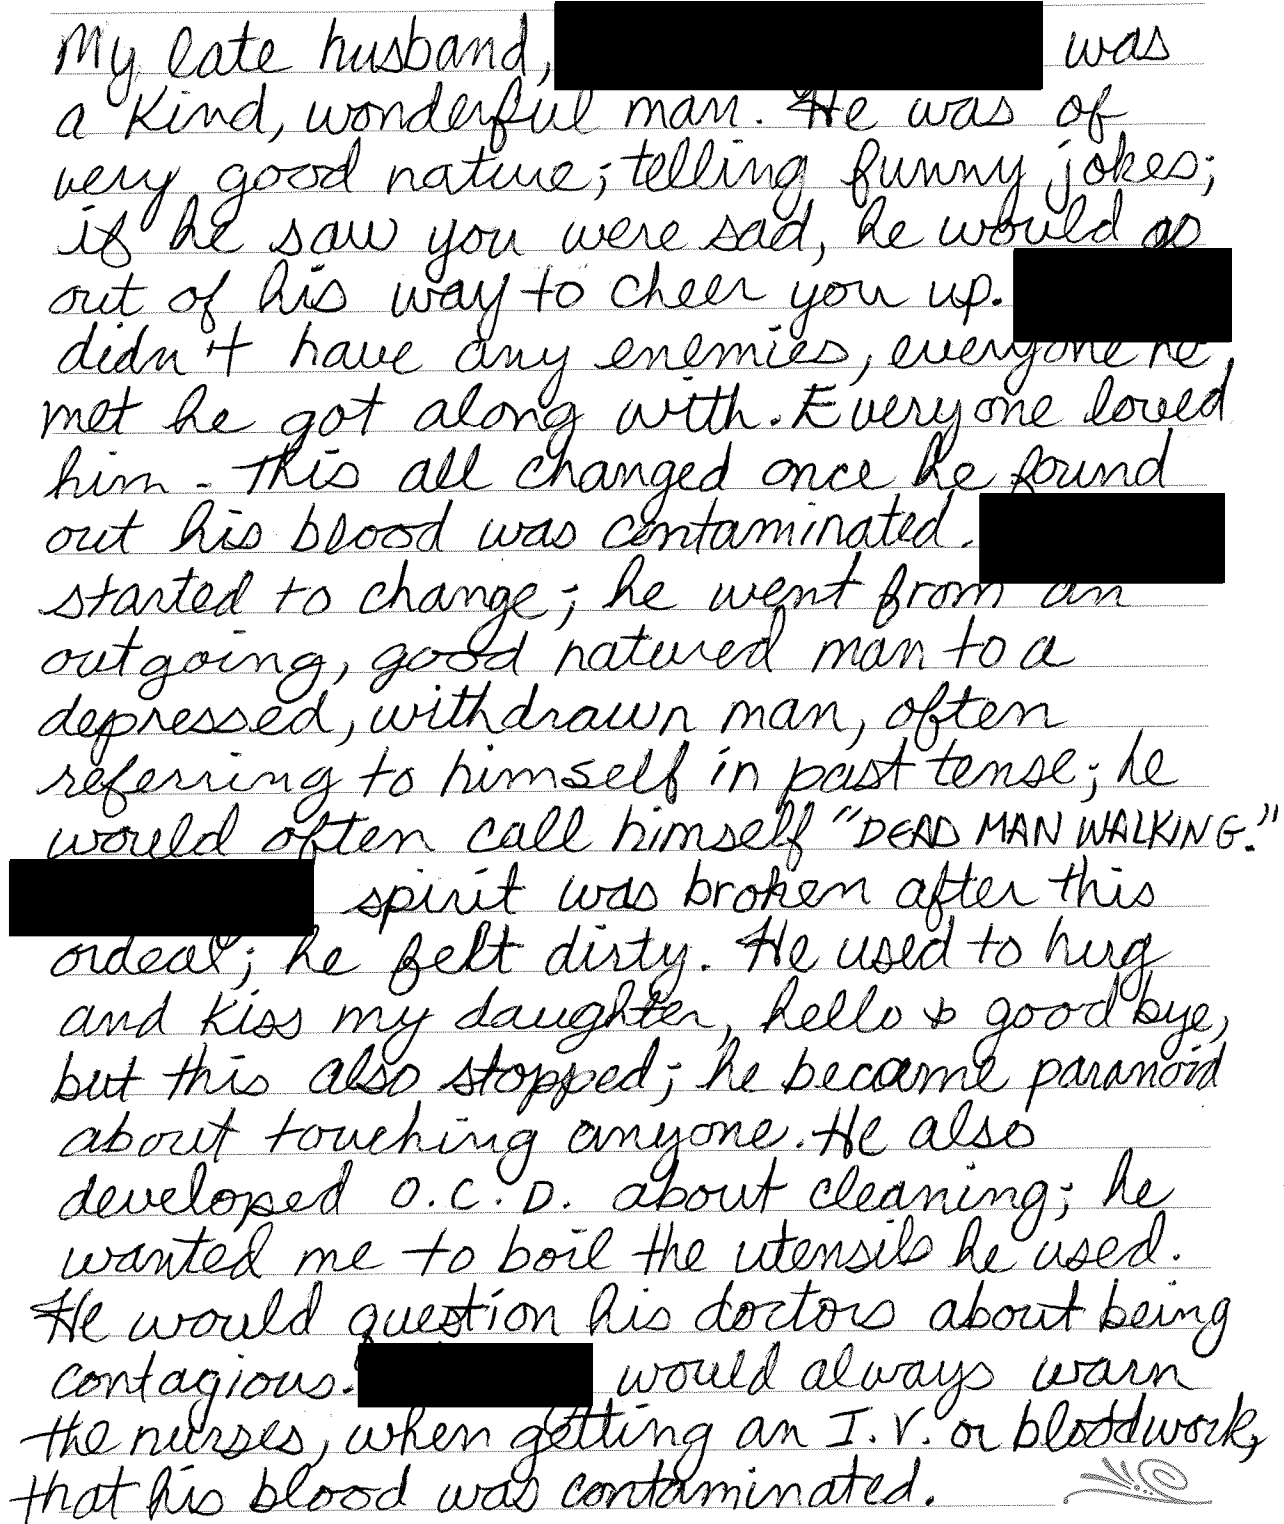 My late husband, was
a kind, wonderful man. He was of
very good nature; telling funny jokes;
if he saw you were sad, he would go
out of his way to cheer you up.
didn't have any enemies, everyone he
met he got along with. Everyone loved
him. This all changed once he found
out his blood was contaminated.
started to change; he went from an
outgoing, good natured man to a
depressed, withdrawn man, often
referring to himself in past tense; he
would often call himself "DEAD MAN WALKING."
spirit was broken after this
ordeal; he felt dirty. He used to hug
and kiss my daughter, hello & good bye,
but this also stopped; he became paranoid
about touching anyone. He also
developed O.C.D. about cleaning; he
wanted me to boil the utensils he used.
He would question his doctors about being
contagious. would always warn
the nurses, when getting an I.V. or bloodwork,
that his blood was contaminated.